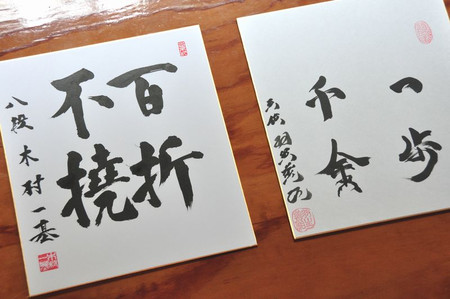 百折
不撓
八段 木村一基
一歩
千金
羽生善治